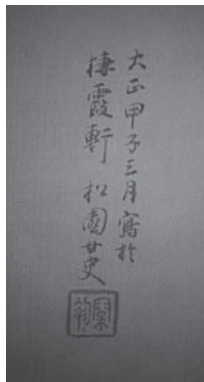 大正甲子三月寫於
棲霞軒 松園女史